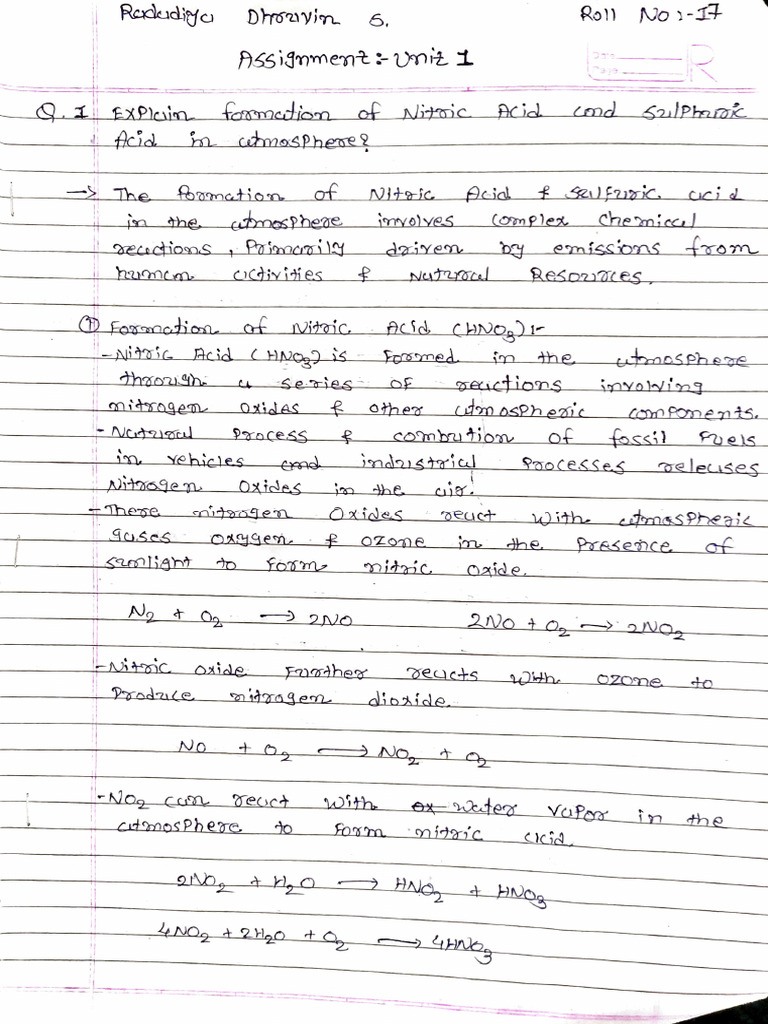 Radadiya Dhruvin S. Roll No :- 17
Assignment :- Unit 1
Q. 1 Explain formation of Nitric Acid and Sulphuric
Acid in atmosphere?
→ The formation of Nitric Acid & Sulfuric acid
in the atmosphere involves complex chemical
reactions, Primarily driven by emissions from
human activities & Natural Resources.
① Formation of Nitric Acid (HNO₃) :-
- Nitric Acid (HNO₃) is formed in the atmosphere
through a series of reactions involving
nitrogen oxides & other atmospheric components.
- Natural Process & combution of fossil fuels
in vehicles and industrial processes releases
Nitrogen Oxides in the air.
- There nitrogen Oxides react with atmospheric
gases oxygen & ozone in the presence of
sunlight to form nitric oxide.
N₂ + O₂ → 2NO 2NO + O₂ → 2NO₂
- Nitric oxide further reacts with ozone to
produce nitrogen dioxide.
NO + O₂ → NO₂ + O₂
- NO₂ can react with water vapor in the
atmosphere to form nitric acid.
2NO₂ + H₂O → HNO₂ + HNO₃
4NO₂ + 2H₂O + O₂ → 4HNO₃